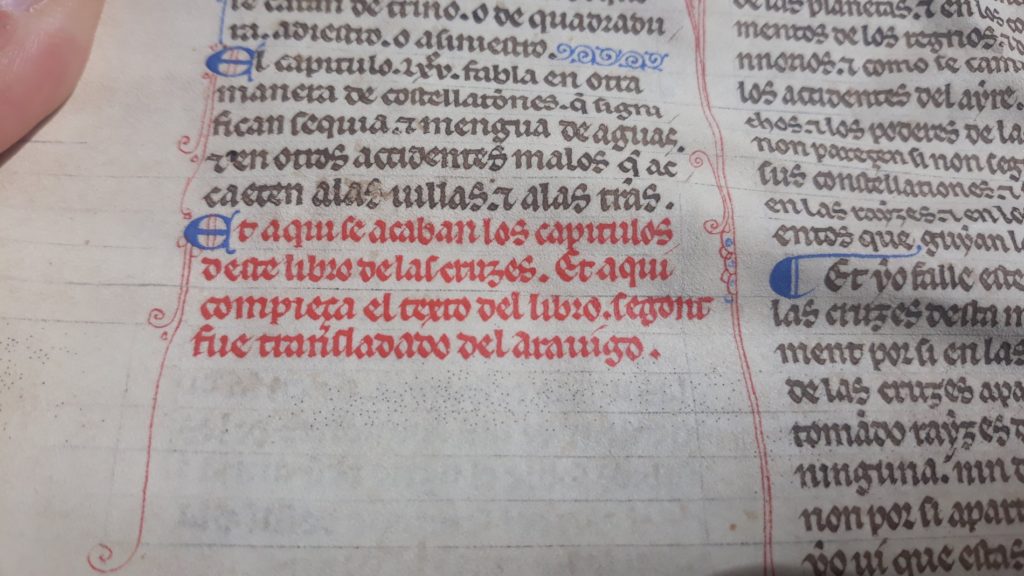 se catan de trino. o de quadradu
ra. adiestro. o asiniestro.
El capitulo. lxv. fabla en otra
manera de costellatōnes. q̄ signi
fican sequia. ⁊ mengua de aguas.
⁊ en otros accidentes malos q̄ ac
caecen alas uillas. ⁊ alas tr̄as.
Et aqui se acaban los capitulos
deste libro de las cruzes. Et aqui
compieça el texto del libro. segont
fue transladado del arauigo.
de las planetas. ⁊ en los
mentos de los regnos. ⁊
nnorios. ⁊ como se cam
los accidentes del aẏre.
⁊ los poderes de la
non pareçen si non seg
sus constellationes. ⁊
en las raẏzes. ⁊ en lo
entos que guẏan l
Et ẏo falle este
las cruzes desta m
ment por si en las
de las cruzes apa
tomādo raẏzes d
ninguna. nin d
non por si apart
ẏo ui que estas